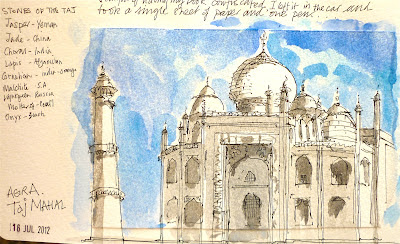 of having my book confiscated I left it in the car and
took a single sheet of paper and one pen...
STONES OF THE TAJ
Jasper - Yemen
Jade - China
China
Coral - India
Lapis - Afganistan
Malachite S.A
Russia
Mother of Pearl
Onyx -
AGRA.
TAJ MAHAL
16 JUL 2012